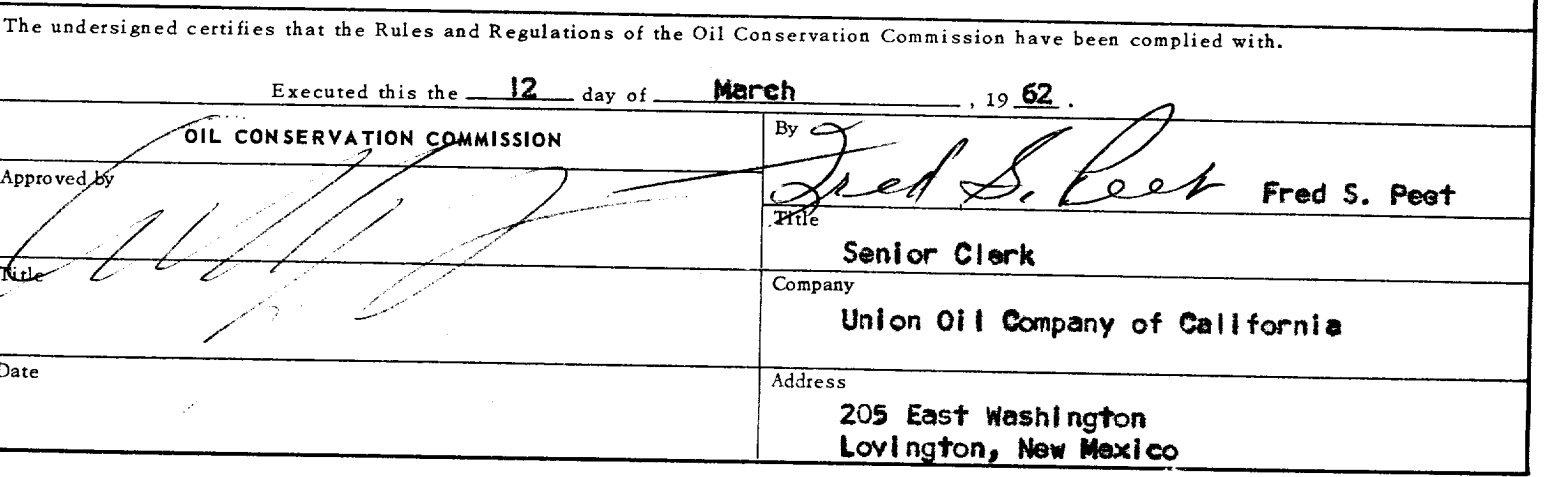 The undersigned certifies that the Rules and Regulations of the Oil Conservation Commission have been complied with.
Executed this the 12 day of March , 19 62 .
OIL CONSERVATION COMMISSION
Approved by
Title
Date
By Fred S. Peet Fred S. Peet
Title
Senior Clerk
Company
Union Oil Company of California
Address
205 East Washington
Lovington, New Mexico